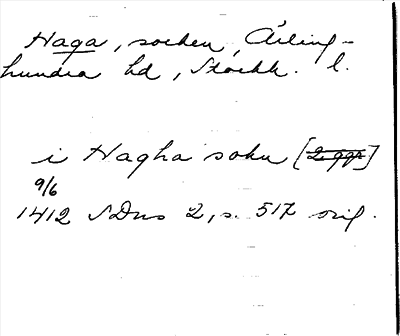 Haga, socken, Ärling-
hundra hd, Stockh. l.
i Hagha sokn [2 ggr]
9/6
1412 SDns 2, s. 517 orig.